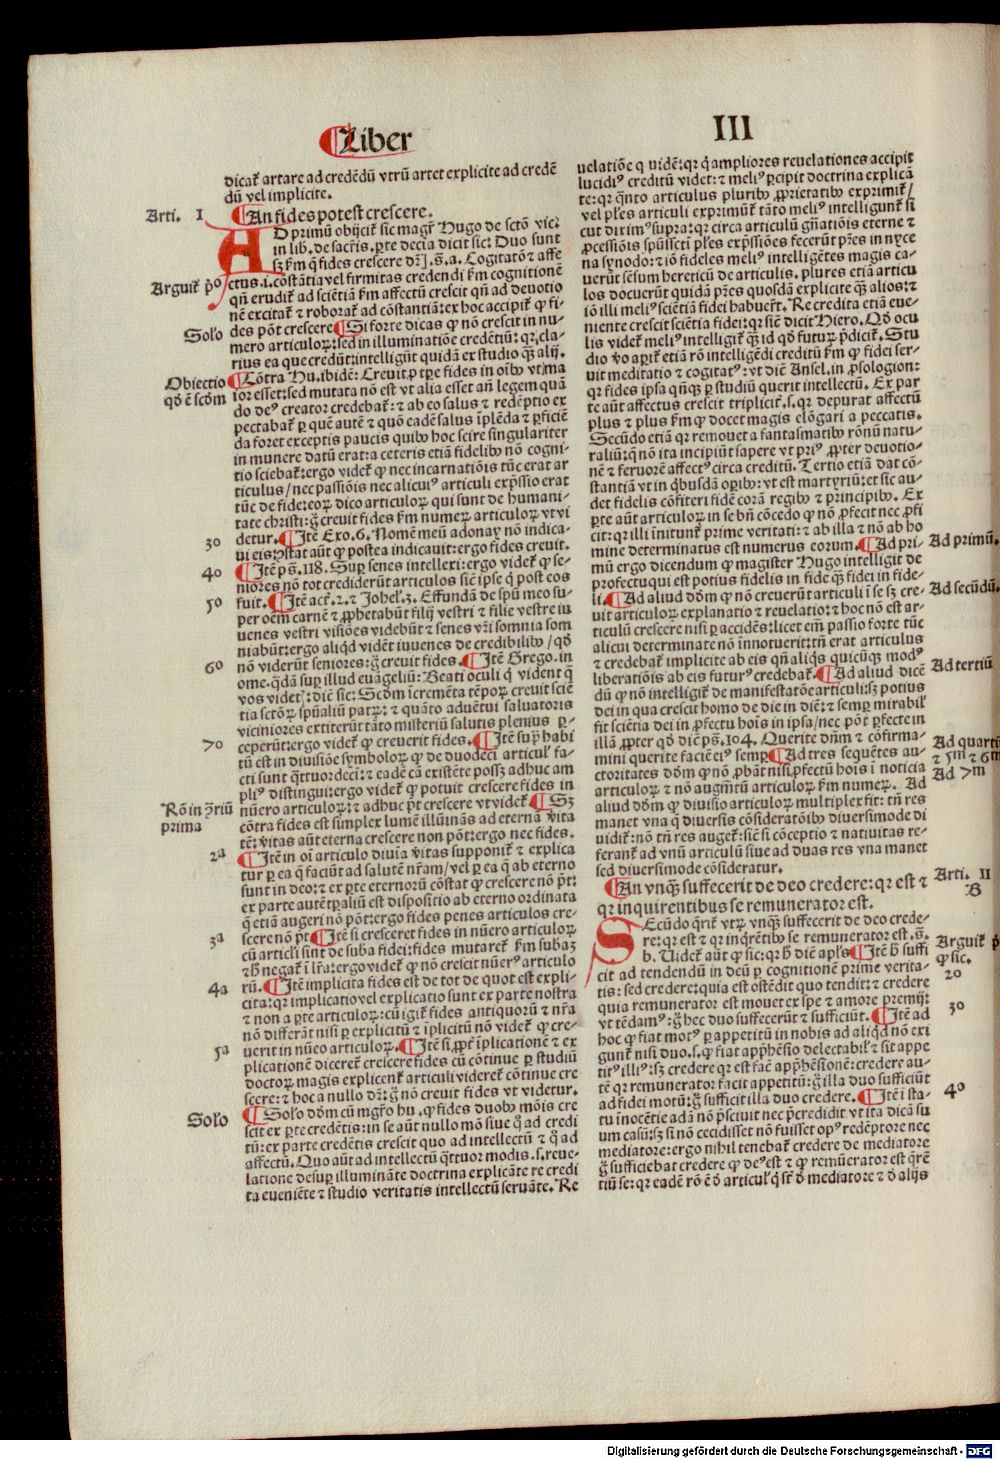 Liber
III
dicat᷒ artare ad credēdū vtrū artet explicite ad credē
dū vel implicite.
Arti. I
¶ An fides potest crescere.
AD primū obijcit᷒ sic magr̄ Hugo de sctō vic᷒
in lib. de sacr̄is. ꝑte decīa dicit sic: Duo sunt
fides crescere
Cogitatō ⁊ affe
ctus .i. cōstātia vel firmitas credendi ẜm cognitionē
Arguit᷒ pͦo
qn̄ erudit᷒ ad sciētiā ẜm affectū crescit qn̄ ad deuotio
nē excitat᷒ ⁊ roborat᷒ ad cōstantiā: ex hoc accipit᷒ ꝙ fi
des pōt crescere ¶ Si forte dicas ꝙ nō crescit in nu-
Solo
mero articuloꝝ: sed in illuminatiōe credētiū: qꝛ cla-
rius ea que credūt: intelligūt quidā ex studio qᷓ alij.
Obiectio
qd̄ ē scd̓m
¶ Cōtra Hu. ibidē: Creuit ꝑ tꝑe fides in oīb᷒ vt ma
ior esset: sed mutata nō est vt alia esset an̄ legem quā
do de᷒ creator credebat᷒: ⁊ ab eo salus ⁊ redēptio ex
pectabat᷒ ꝑ quē autē ⁊ quō eadē salus īplēda ⁊ ꝑficiē
da foret exceptis paucis quib᷒ hoc scire singulariter
in munere datū erat: a ceteris etiā fidelib᷒ nō cogni-
tio sciebat᷒: ergo videt᷒ ꝙ nec incarnatiōis tūc erat ar
ticulus / nec passiōis nec alicui᷒ articuli exp̄ssio erat
tūc de fide: eoꝝ dico articuloꝝ qui sunt de humani-
tate christi: g̊ creuit fides ẜm numeꝝ articuloꝝ vt vi
detur. ¶ Itē Exo. 6. Nomē meū adonay nō indica-
30
ui eis: ꝯstat aūt ꝙ postea indicauit: ergo fides creuit.
40
¶ Itē ps̄. 118. Suꝑ senes intellexi: ergo videt᷒ ꝙ se-
niores nō tot crediderūt articulos sic̄ ipse q̇ post eos
50
fuit. ¶ Itē act̄. 2. ⁊ Johel. 3. Effundā de spū meo su-
per oēm carnē ⁊ ꝓphetabūt filij vestri ⁊ filie vestre iu
uenes vestri visiōes videbūt ⁊ senes vr̄i somnia som
niabūt: ergo aliqd̄ vidēt iuuenes de credibilib᷒ / qd̄
60
nō viderūt seniores: g̊ creuit fides. ¶ Itē Grego. in
ome. q̄dā suꝑ illud euāgeliū: Beati oculi q̇ vident q̄
vos videt᷒: diē sic: Scd̓m īcremēta tēpoꝝ creuit sciē
tia sctōꝝ spūaliū patꝝ: ⁊ quāto aduētui saluatoris
viciniores extiterūt tāto misteriū salutis plenius ꝑ-
70
ceperūt: ergo videt᷒ ꝙ creuerit fides. ¶ Itē suꝑ habi
tū est in diuisiōe symboloꝝ ꝙ de duodecī articul᷒ fa-
cti sunt q̄ttuordecī: ⁊ eadē cā existēte posss̄ adhuc am
pli᷒ distingui: ergo videt᷒ ꝙ potuit crescere fides in
Rō in ꝯriū
prima
nūero articuloꝝ: ⁊ adhuc pt̄ crescere vt videt᷒ ¶ Sꝫ
cōtra fides est simplex lumē illūinās ad eternā v̓ita
tē: v̓itas aūt eterna crescere non pōt: ergo nec fides.
2ᵃ
¶ Itē in oī articulo diuīa v̓itas supponit᷒ ⁊ explica
tur ꝑ ea q̄ faciūt ad salutē nr̄am / vel ꝑ ea q̄ ab eterno
sunt in deo: ⁊ ex ꝑte eternorū cōstat ꝙ crescere nō pn̄t:
ex parte autē tꝑaliū est dispositio ab eterno ordinata
q̄ etiā augeri nō pōt: ergo fides penes articulos cre-
3ᵃ
scere nō pt̄ ¶ Itē si cresceret fides in nūero articuloꝝ
cū articli sint de suba fidei: fides mutaret᷒ ẜm subaꝫ
⁊ h̄ negat᷒ ī lr̄a: ergo videt᷒ ꝙ nō crescit nūer᷒ articulo
4a
rū. ¶ Itē implicita fides est de tot de quot est expli-
cita: qꝛ implicatio vel explicatio sunt ex parte nostra
⁊ non a ꝑte articuloꝝ: cū igit᷒ fides antiquorū ⁊ nr̄a
nō differāt nisi ꝑ explicitū ⁊ īplicitū nō videt᷒ ꝙ cre-
5a
uerit in nūeo articuloꝝ. ¶ Itē si ꝓpt̄ īplicationē ⁊ ex
plicationē diceret᷒ crescere fides cū cōtinue ꝑ studiū
doctoꝝ magis explicent᷒ articuli videret᷒ cōtinue cre
scere: ⁊ hoc a nullo dr̄: g̊ nō creuit fides vt videtur.
Solo
¶ Solo dd̄m cū mgr̄o hu. ꝙ fides duob᷒ mōis cre
scit ex ꝑte credētis: in se aūt nullo mō siue q̄ ad credi
tū: ex parte credētis crescit quo ad intellectū ⁊ q̄ ad
affectū. Quo aūt ad intellectū q̄ttuor modis .s. reue-
latione desuꝑ illumināte doctrina explicāte re credi
ta eueniēte ⁊ studio veritatis intellectū seruāte. Re
uelatiōe q̇ uidē: qꝛ q̇ ampliores reuelationes accipit
lucidi᷒ creditū videt: ⁊ meli᷒ ꝑcipit doctrina explicā
te: qꝛ q̄nto articulus pluribꝰ ꝓprietatibꝰ exprimit᷒ /
vel pl̄es articuli exprimūt᷒ tāto meli᷒ intelligunt᷒ si
cut dixim᷒ supra: qꝛ circa articulū gn̄atiōis eterne ⁊
ꝓcessiōis spūsscti pl̄es exp̄ssiōes fecerūt pr̄es in nyce
na synodo: ⁊ iō fideles meli᷒ intelligētes magis ca-
uerūt sēsum hereticū de articulis. plures etiā articu
los docuerūt quidā pr̄es quosdā explicite qᷓ alios: ⁊
iō illi meli᷒ sciētiā fidei habuer̄t. Re credita etiā eue-
niente crescit sciētia fidei: qꝛ sic̄ dicit Hiero. Qd̄ ocu
lis videt᷒ meli᷒ intelligit᷒ qᷓ id qd̄ futuꝝ p̄dicit᷒. Stu
dio v̓o aꝑit᷒ etiā rō intelligēdi creditū ẜm ꝙ fidei ser-
uit meditatio ⁊ cogitat᷒: vt diē Ansel. in ꝓsologion:
qꝛ fides ipsa qn̄qꝫ ꝑ studiū querit intellectū. Ex par
te aūt affectus crescit triplicit̄ .s. qꝛ depurat affectū
plus ⁊ plus ẜm ꝙ docet magis elōgari a peccatis.
Secūdo etiā qꝛ remouet a fantasmatibꝰ rōnū natu-
raliū: q̄ nō ita incipiūt sapere vt pri᷒ ꝓpter deuotio-
nē ⁊ feruorē affect᷒ circa creditū. Tertio etiā dat cō-
stantiā vt in q̇busdā oꝑibꝰ: vt est martyriū: et sic au-
det fidelis cōfiteri fidē corā regibꝰ ⁊ principibꝰ. Ex
ꝑte aūt articuloꝝ in se bn̄ cōcedo ꝙ nō ꝓfecit nec ꝓfi
cit: qꝛ illi īnitunt᷒ prime veritati: ⁊ ab illa ⁊ nō ab ho
mine determinatus est numerus eorum. ¶ Ad pri-
Ad primū.
mū ergo dicendum ꝙ magister Hugo intelligit de
profectu qui est potius fidelis in fide qᷓ fidei in fide-
li. ¶ Ad aliud dd̄m ꝙ nō creuerūt articuli ī se sꝫ cre-
Ad secūdū.
uit articuloꝝ explanatio ⁊ reuelatio: ⁊ hoc nō est ar-
ticulū crescere nisi ꝑ accidēs: licet em̄ passio forte tūc
alicui determinate nō innotuerit: tn̄ erat articulus
⁊ credebat᷒ implicite ab eis qn̄ aliq̄s quicūqꝫ mod᷒
Ad tertiū
liberatiōis ab eis futur᷒ credebat᷒. ¶ Ad aliud dicē
dū ꝙ nō intelligit᷒ de manifestatōe articuli: sꝫ potius
dei in qua crescit homo de die in diē: ⁊ semꝑ mirabil᷒
fit sciētia dei in ꝓfectu hoīs in ipsa / nec pōt ꝑfecte in
illā ꝓpter qd̄ diē ps̄. 104. Querite dn̄m ⁊ cōfirma-
Ad quartū
⁊ 5ᵐ ⁊ 6ᵐ
mini querite faciē ei᷒ semꝑ ¶ Ad tres sequētes au-
Ad 7ᵐ
ctoritates dd̄m ꝙ nō ꝓbāt nisi ꝓfectū hoīs ī noticia
articuloꝝ ⁊ nō augm̄tū articuloꝝ ẜm numeꝝ. Ad
aliud dd̄m ꝙ diuisio articuloꝝ multiplex fit: tn̄ res
manet vna q̄ diuersis cōsideratōibꝰ diuersimode di
uidit᷒: nō tn̄ res auget᷒: sic̄ si cōceptio ⁊ natiuitas re-
ferant᷒ ad vnū articulū siue ad duas res vna manet
sed diuersimode cōsideratur.
Arti. II
¶ An vnqᷓ suffecerit de deo credere: qꝛ est ⁊
qꝛ inquirentibus se remunerator est.
SEcūdo q̄rit᷒ vtꝝ vnqᷓ suffecerit de deo crede-
re: qꝛ est ⁊ qꝛ inq̇rētibꝰ se remunerator est
Arguit᷒ ꝙ sic.
Uidet᷒ aūt ꝙ sic: qꝛ h̄ diē apl̄s ¶ Itē h̄ suffi
20
cit ad tendendū in deū ꝑ cognitionē prime verita-
tis: sed credere: quia est ostēdit quo tendit᷒: ⁊ credere
quia remunerator est mouet ex spe ⁊ amore premij:
30
vt tēdam᷒: g̊ hec duo suffecerūt ⁊ sufficiūt. ¶ Itē ad
hoc ꝙ fiat mot᷒ ꝑ appetitū in nobis ad aliqd̄ nō exi
gunt᷒ nisi duo .s. ꝙ fiat app̄hēsio delectabil᷒ ⁊ sit appe
tit᷒ illi᷒: sꝫ credere qꝛ est facit app̄hēsionē: credere au-
tē qꝛ remunerator facit appetitū: g̊ illa duo sufficiūt
40
ad fidei motū: g̊ sufficit illa duo credere. ¶ Itē ī sta-
tu inocētie adā nō p̄sciuit nec p̄credidit vt ita dicā su
um casū: sꝫ si nō cecidisset nō fuisset op᷒ redēptore nec
mediatore: ergo nihil tenebat᷒ credere de mediatore
g̊ sufficiebat credere ꝙ de᷒ est ⁊ ꝙ remūerator est q̄rē
tiū se: qꝛ eadē rō ē de mediatore ⁊ d̓ alijs
Digitalisierung gefördert durch die Deutsche Forschungsgemeinschaft - DFG